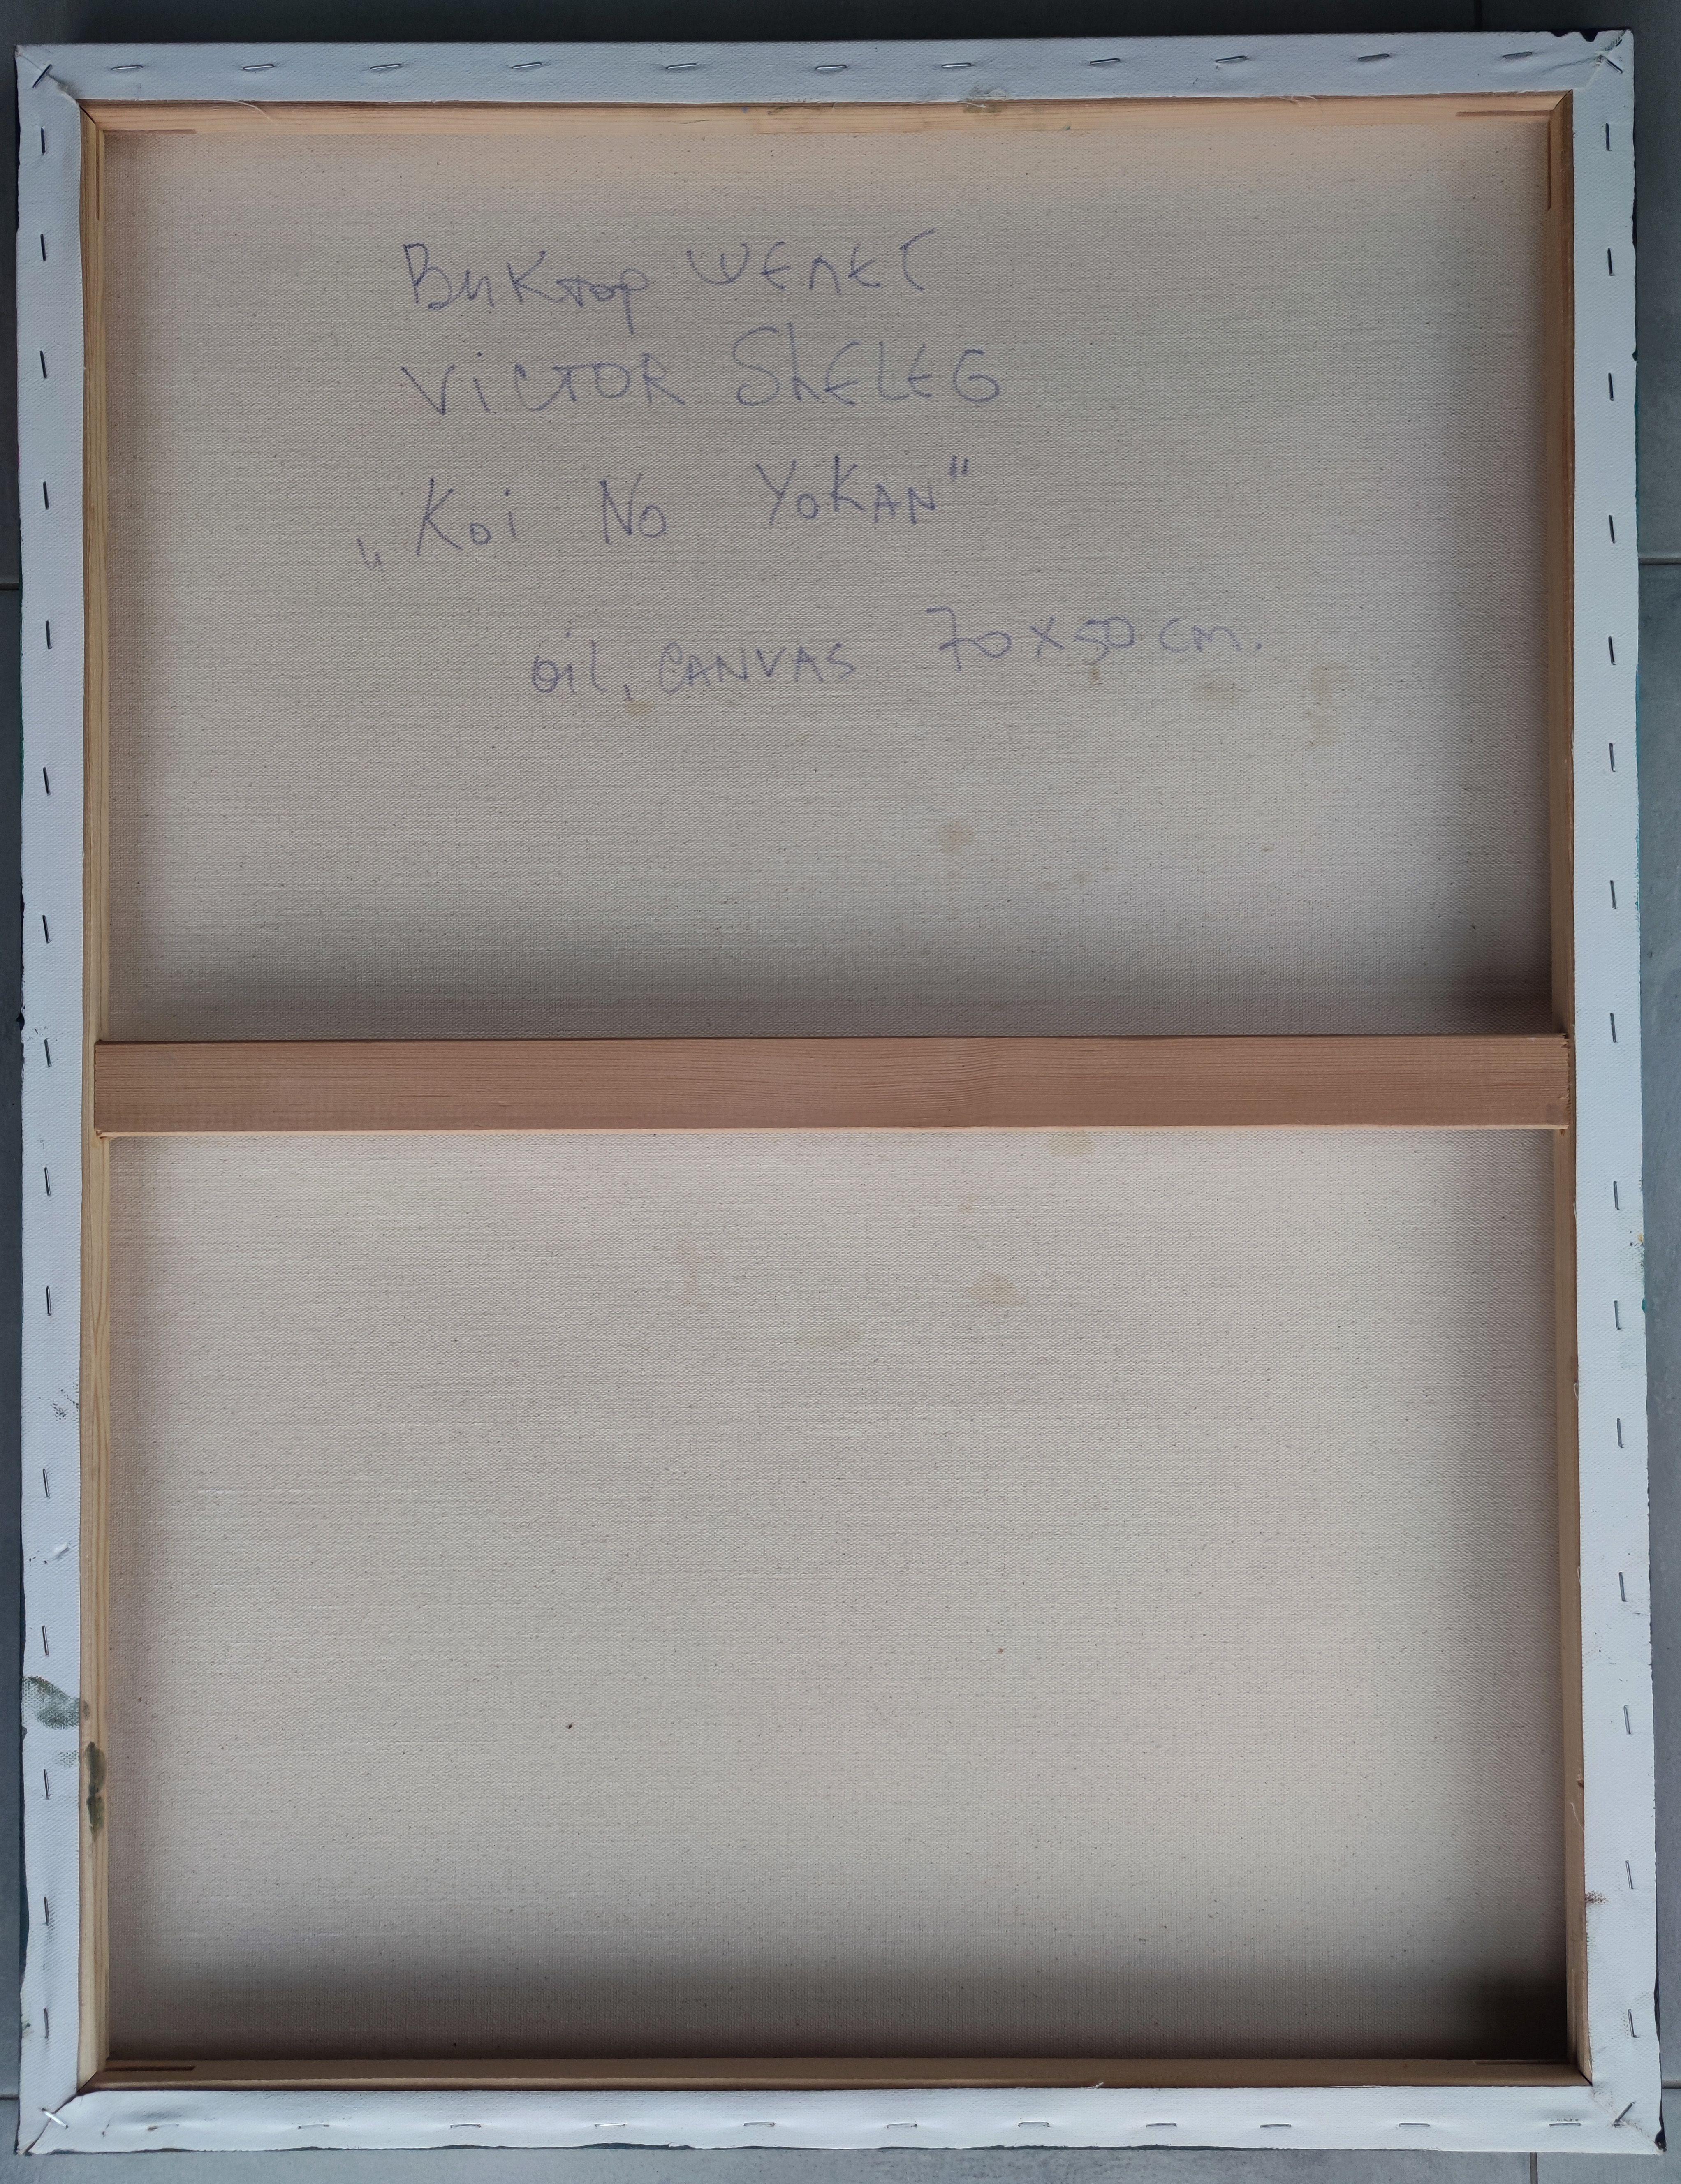 Виктор ШЕЛЕГ
VICTOR ShELEG
„Koi No YoKAN"
oil, CANVAS 70x50 cm.